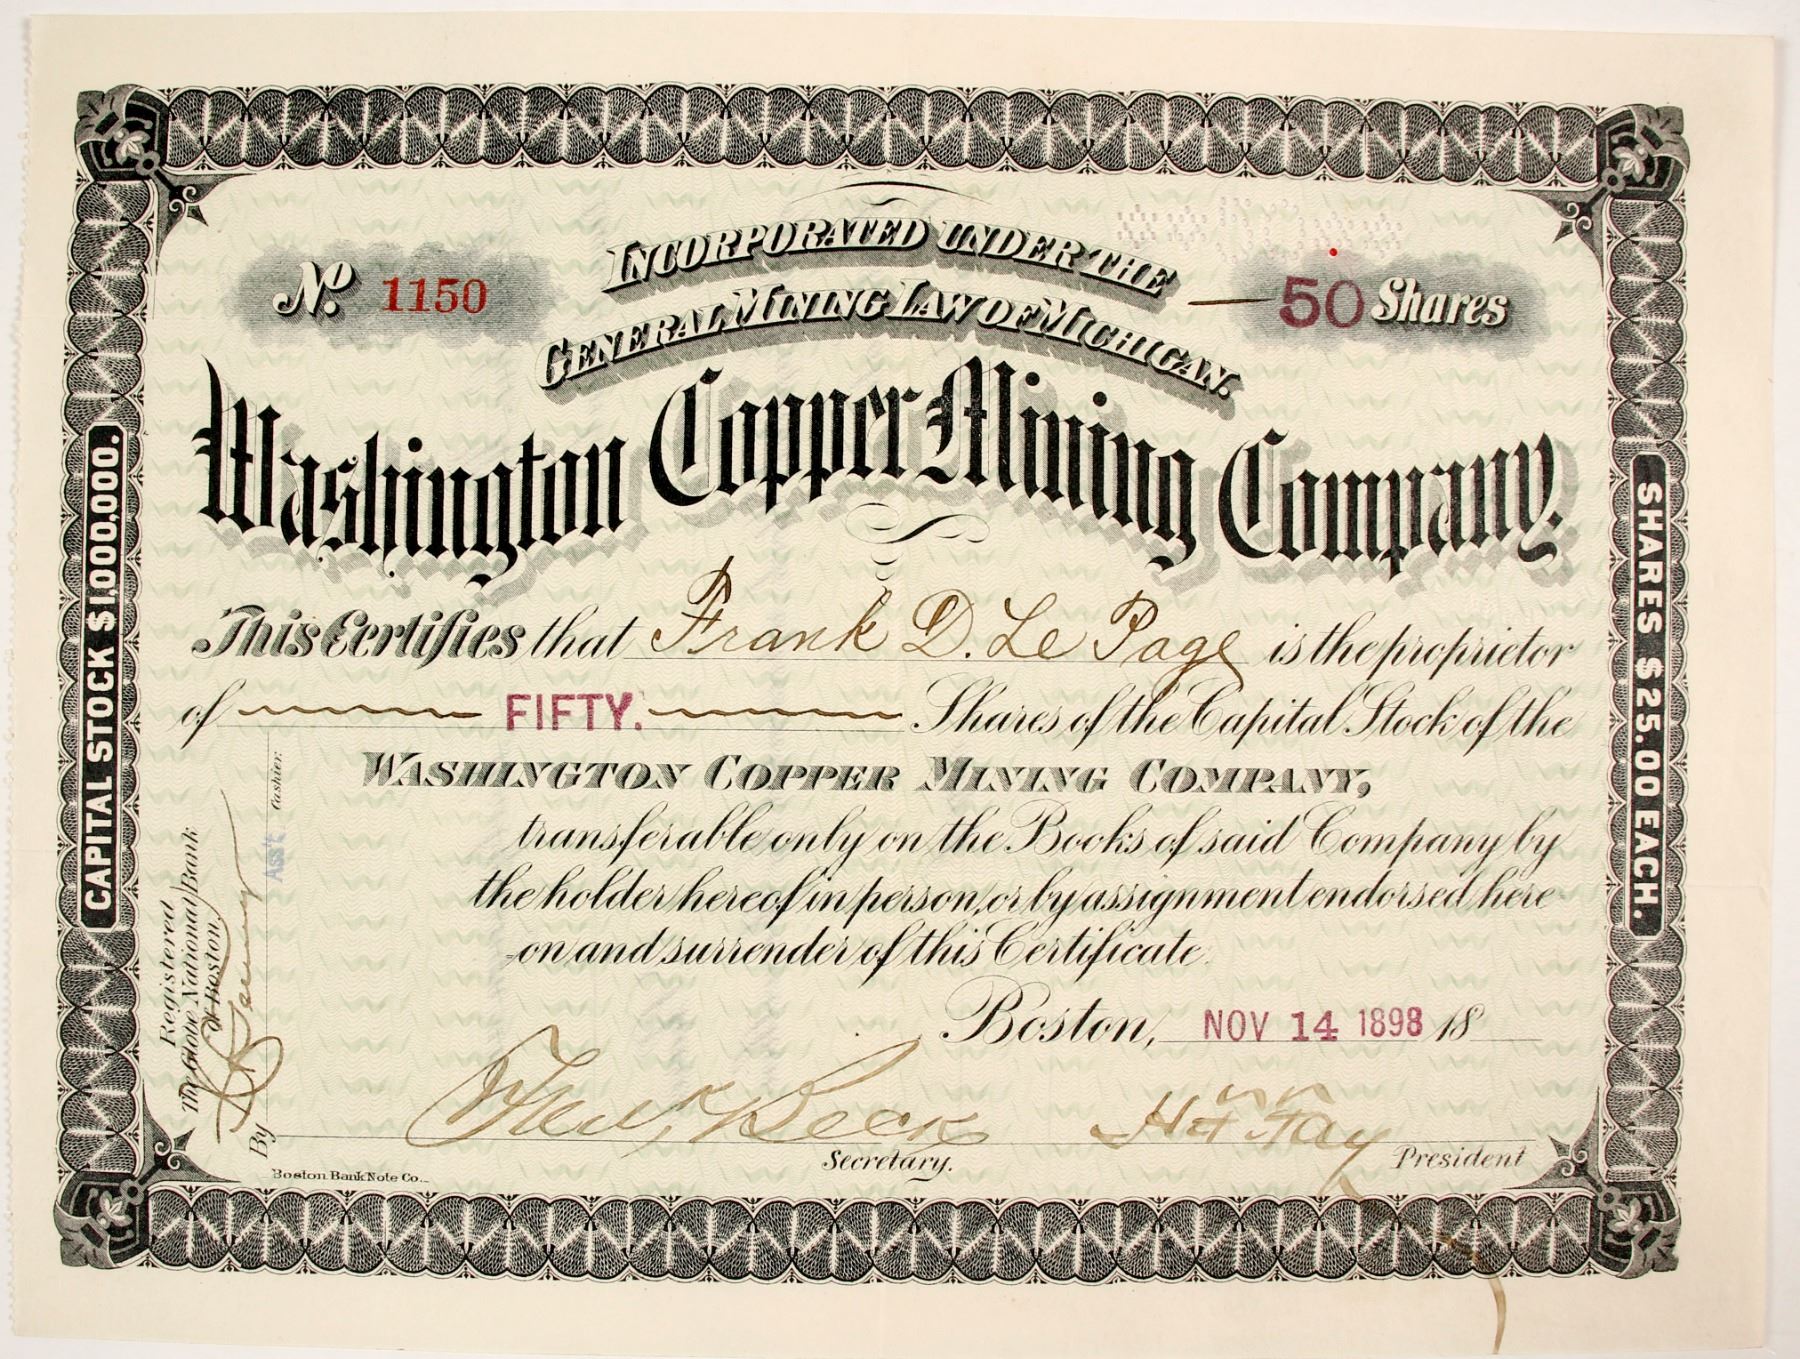 INCORPORATED UNDER THE
GENERAL MINING LAW OF MICHIGAN.
No. 1150
50 Shares
Washington Copper Mining Company.
This Certifies that Frank D. Le Page is the proprietor
of FIFTY. Shares of the Capital Stock of the
WASHINGTON COPPER MINING COMPANY,
transferable only on the Books of said Company by
the holder hereof in person, or by assignment endorsed here-
on and surrender of this Certificate.
Boston, NOV 14 1898 18
Secretary.
Fay
President
Boston Bank Note Co.
CAPITAL STOCK $1,000,000.
SHARES $25.00 EACH.
Registered
The Globe National Bank
of Boston.
By
Ass't Cashier.